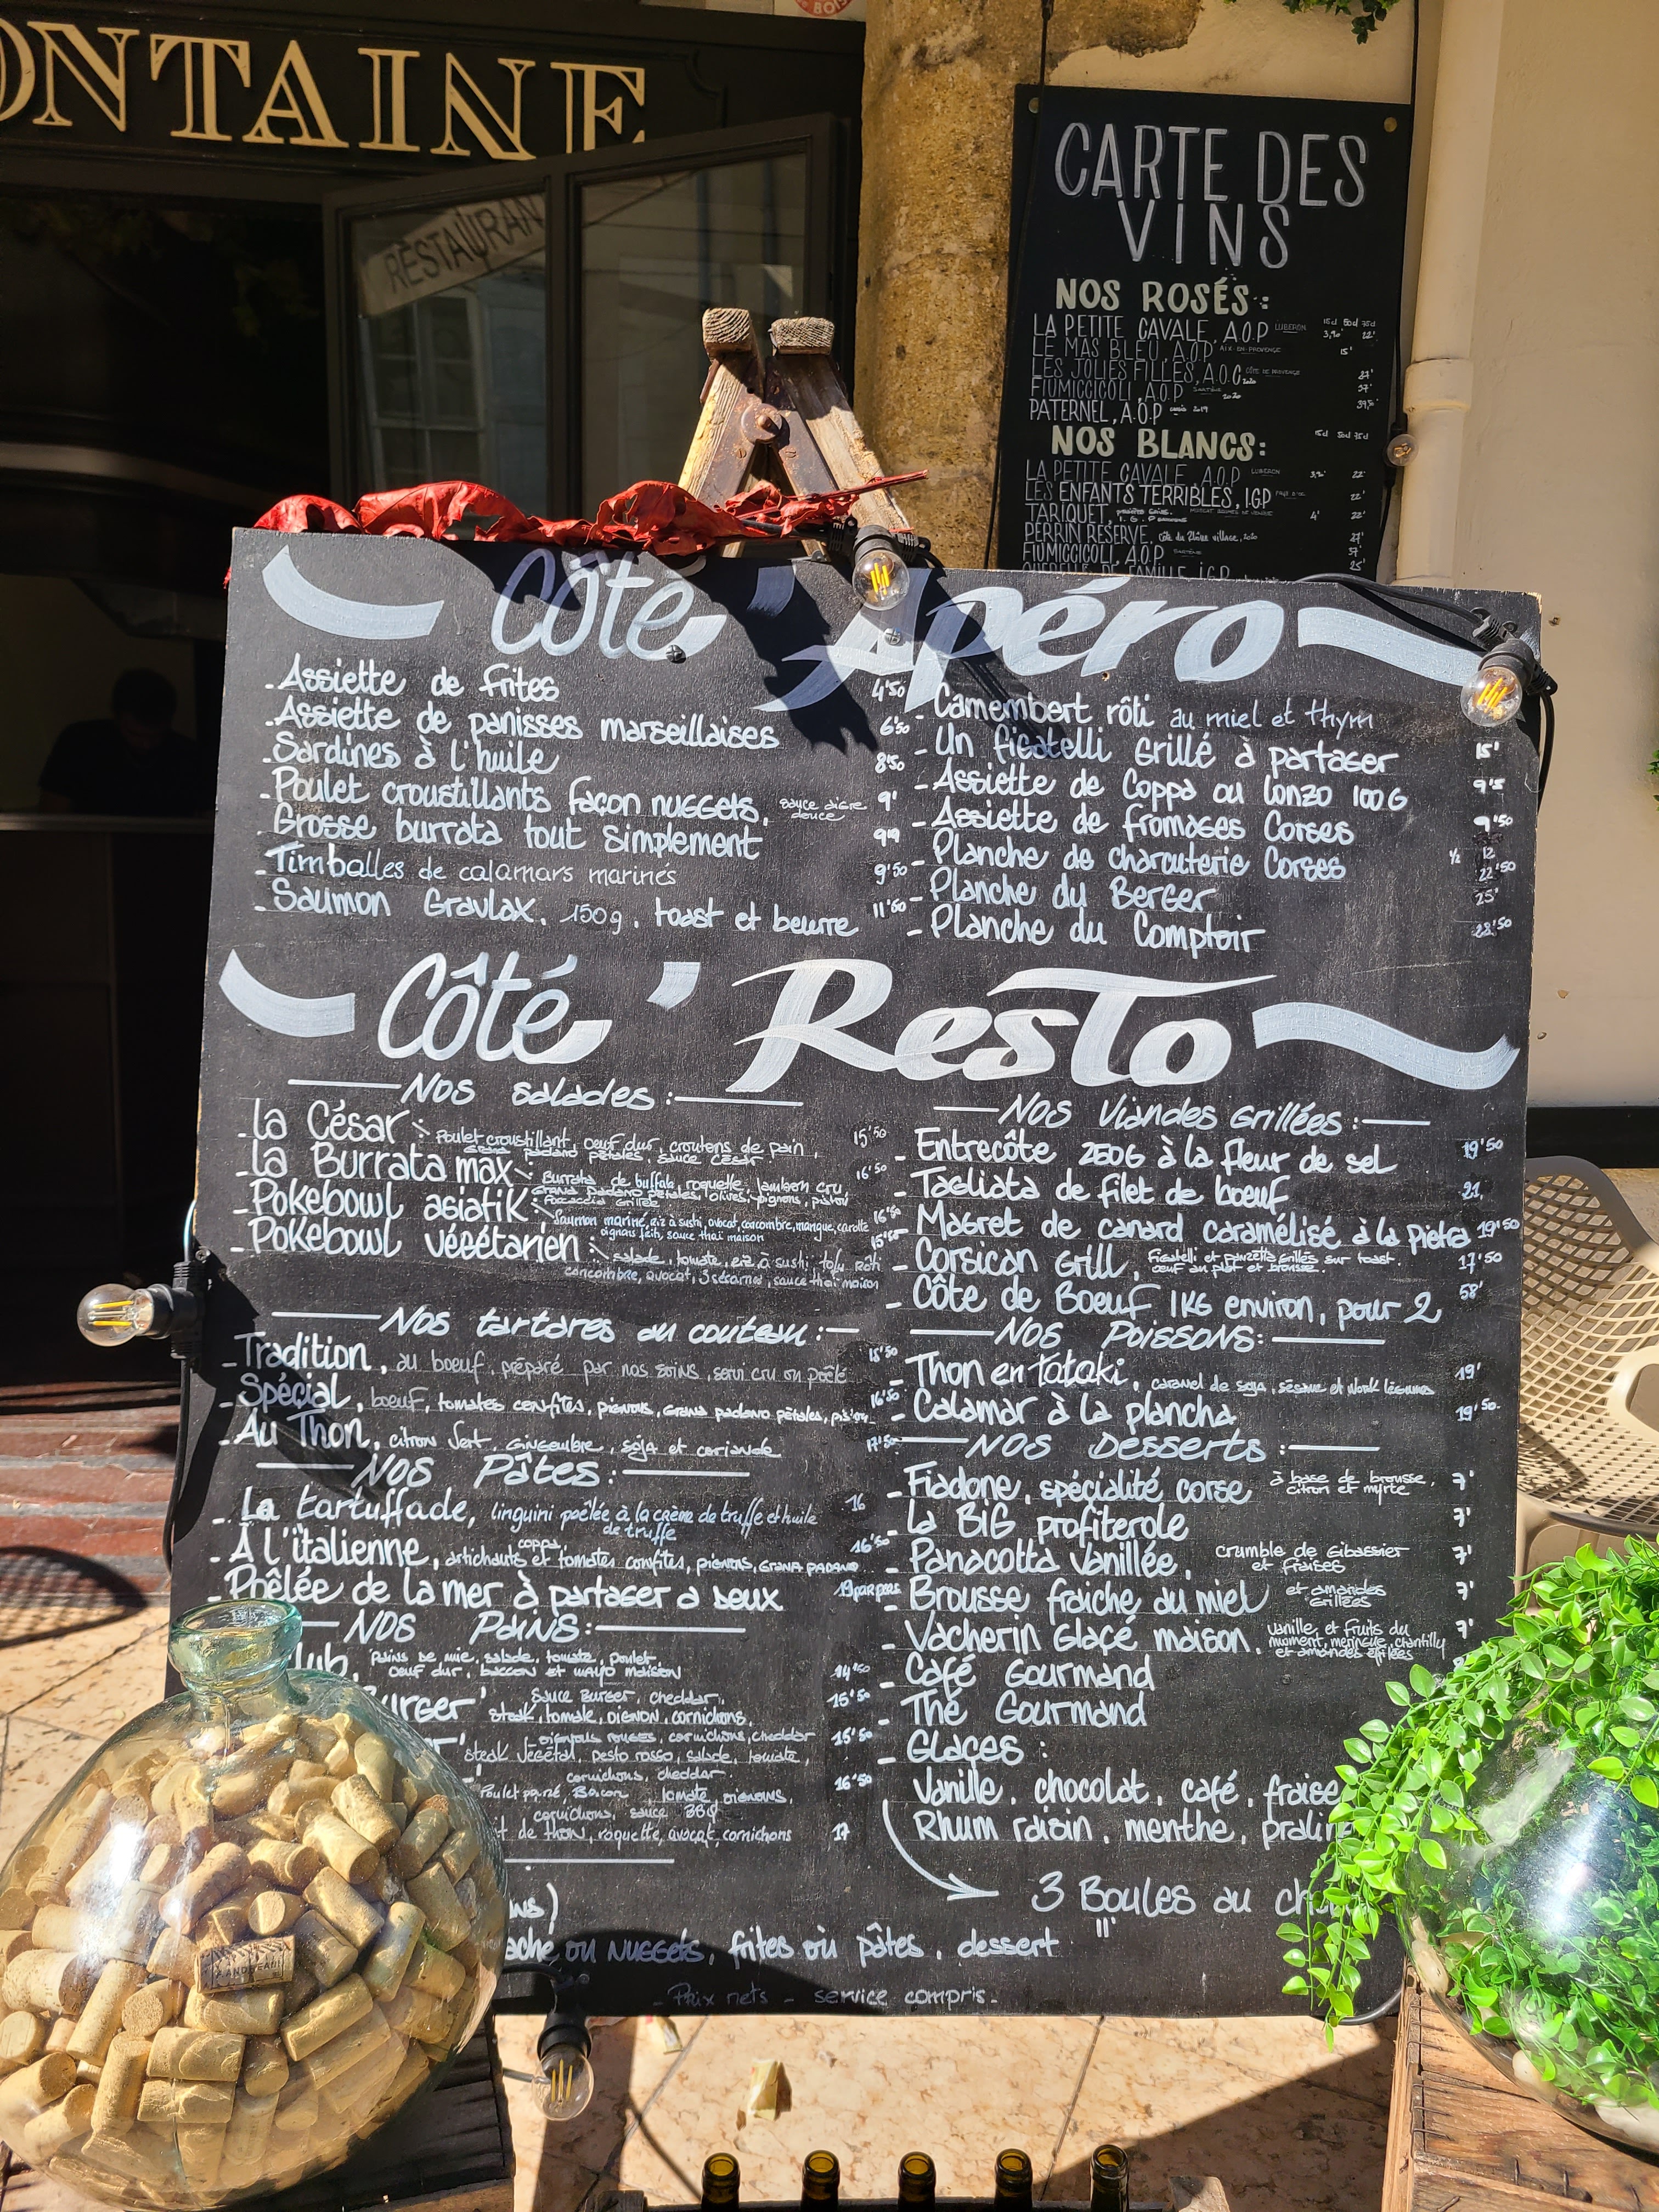 ONTAINE
RESTAURAN
CARTE DES
VINS
NOS ROSÉS :
15cl 50cl 75cl
LA PETITE CAVALE, A.O.P LUBERON 3,90' 22'
LE MAS BLEU, A.O.P AIX-EN-PROVENCE 15'
LES JOLIES FILLES, A.O.C CÔTE DE PROVENCE 2020 27'
FIUMICCICOLI, A.O.P SARTÈNE 2020 37'
PATERNEL, A.O.P cassis 2019
NOS BLANCS:
15cl 50cl 75cl
LA PETITE CAVALE, A.O.P LUBERON 22'
LES ENFANTS TERRIBLES, I.GP 22'
TARIQUET, 4' 22'
PERRIN RESERVE, 27'
FIUMICCICOLI, A.O.P SARTÈNE 37'
25'
Côté 'Apéro
- Assiette de frites 4'50
- Assiette de panisses marseillaises 6'50
- Sardines à l'huile 8'50
- Poulet croustillants façon nuggets, sauce aigre douce 9'
- Grosse burrata tout simplement 9'9
- Timballes de calamars marinés 9'50
- Saumon Gravlax, 150g, toast et beurre 11'60
- Camembert rôti au miel et thym
- Un figatelli Grillé à partager 15'
- Assiette de Coppa ou Lonzo 100G 9'5
- Assiette de fromages Corses 9'50
- Planche de charcuterie Corses 1/2 12 22'50
- Planche du Berger 25'
- Planche du Comptoir 22'50
Côté ' Resto
Nos salades :
- La César : Poulet croustillant, oeuf dur, croutons de pain, 15'50
Grana padano pétales, sauce césar.
- La Burrata max : Burrata de buffala, roquette, jambon cru, 16'50
Grana padano pétales, olives, pignons, pistou
Focaccia Grillée
- Pokebowl asiatik : Saumon mariné, riz à sushi, avocat, concombre, mangue, carotte 16'50
oignons frits, sauce thaï maison
- Pokebowl végétarien : salade, tomate, riz à sushi, tofu roti 15'50
concombre, avocat, 3 sésames, sauce thaï maison
Nos tartares au couteau :
- Tradition, au boeuf, préparé par nos soins, servi cru ou poêlé 15'50
- Spécial, boeuf, tomates confites, pignons, Grana padano pétales, 16'50
- Au Thon, citron vert, Gingembre, soja et coriande 17'50
Nos Pâtes :
- La tartuffade, linguini poêlée à la crème de truffe et huile 16
de truffe
- À l'italienne, coppa, artichauts et tomates confites, pignons, GRANA PADANO 16'50
- Poêlée de la mer à partager a deux 19 par pers
Nos Pains :
lub, Pains de mie, salade, tomate, poulet, 14'50
oeuf dur, baccon et mayo maison
urger' Sauce Burger, cheddar, 15'50
steak, tomate, oignon, cornichons,
oignons rouges, cornichons, cheddar 15'50
steak végétal, pesto rosso, salade, tomate,
cornichons, cheddar.
Poulet pané, Bacon, tomate, oignons, 16'50
cornichons, sauce BBQ
de thon, roquette, avocat, cornichons 17
ns)
ache ou NUGGETS, frites ou pâtes, dessert 11'
- Prix nets - service compris -
Nos Viandes Grillées :
- Entrecôte 250G à la fleur de sel 19'50
- Tagliata de filet de boeuf 21,
- Magret de canard caramélisé à la pietra 19'50
- Corsican Grill, Figatelli et panzetta Grillés sur toast, 17'50
oeuf au plat et brousse.
- Côte de Boeuf 1KG environ, pour 2 58'
Nos Poissons:
- Thon en tataki, caramel de soja, sésame et wok légumes 19'
- Calamar à la plancha 19'50
Nos Desserts :
- Fiadone, spécialité corse à base de brousse, 7'
citron et myrte
- La BiG profiterole 7'
- Panacotta Vanillée, crumble de Gibassier 7'
et fraises
- Brousse fraiche au miel et amandes 7'
Grillées
- Vacherin Glaçé maison, vanille et fruits du 7'
moment, meringue, chantilly
et amandes éffilées
- Café Gourmand
- Thé Gourmand
- Glaçes :
Vanille, chocolat, café, fraise
Rhum raisin, menthe, pralin
3 Boules au ch